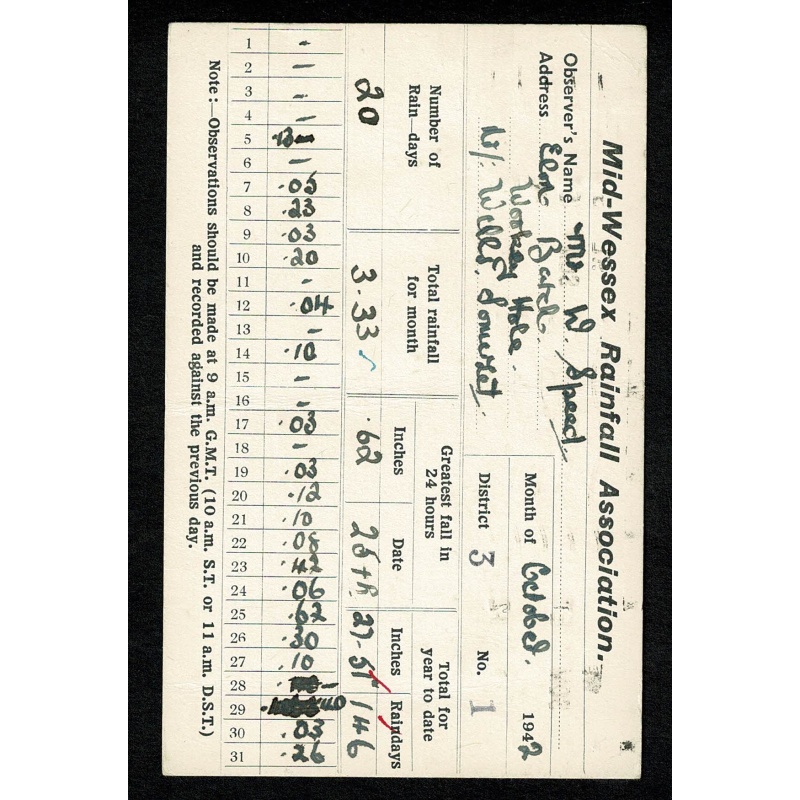 Mid-Wessex Rainfall Association.
Observer's Name Mr. W. Speed
Month of October. 1942
Address Elm Batch.
Wookey Hole.
Nr. Wells. Somerset.
District 3 No. 1
Number of Rain—days
Total rainfall for month
Greatest fall in 24 hours
Total for year to date
Inches Date Inches Raindays
20 3.33 .62 25th 27.51 146
1 -
2 -
3 -
4 -
5 .13
6 -
7 .05
8 .23
9 .03
10 .20
11 -
12 .04
13 -
14 .10
15 -
16 -
17 .03
18 -
19 .03
20 .12
21 .10
22 .08
23 .42
24 .06
25 .62
26 .30
27 .10
28 -
29 .40
30 .03
31 .26
Note:—Observations should be made at 9 a.m. G.M.T. (10 a.m. S.T. or 11 a.m. D.S.T.)
and recorded against the previous day.